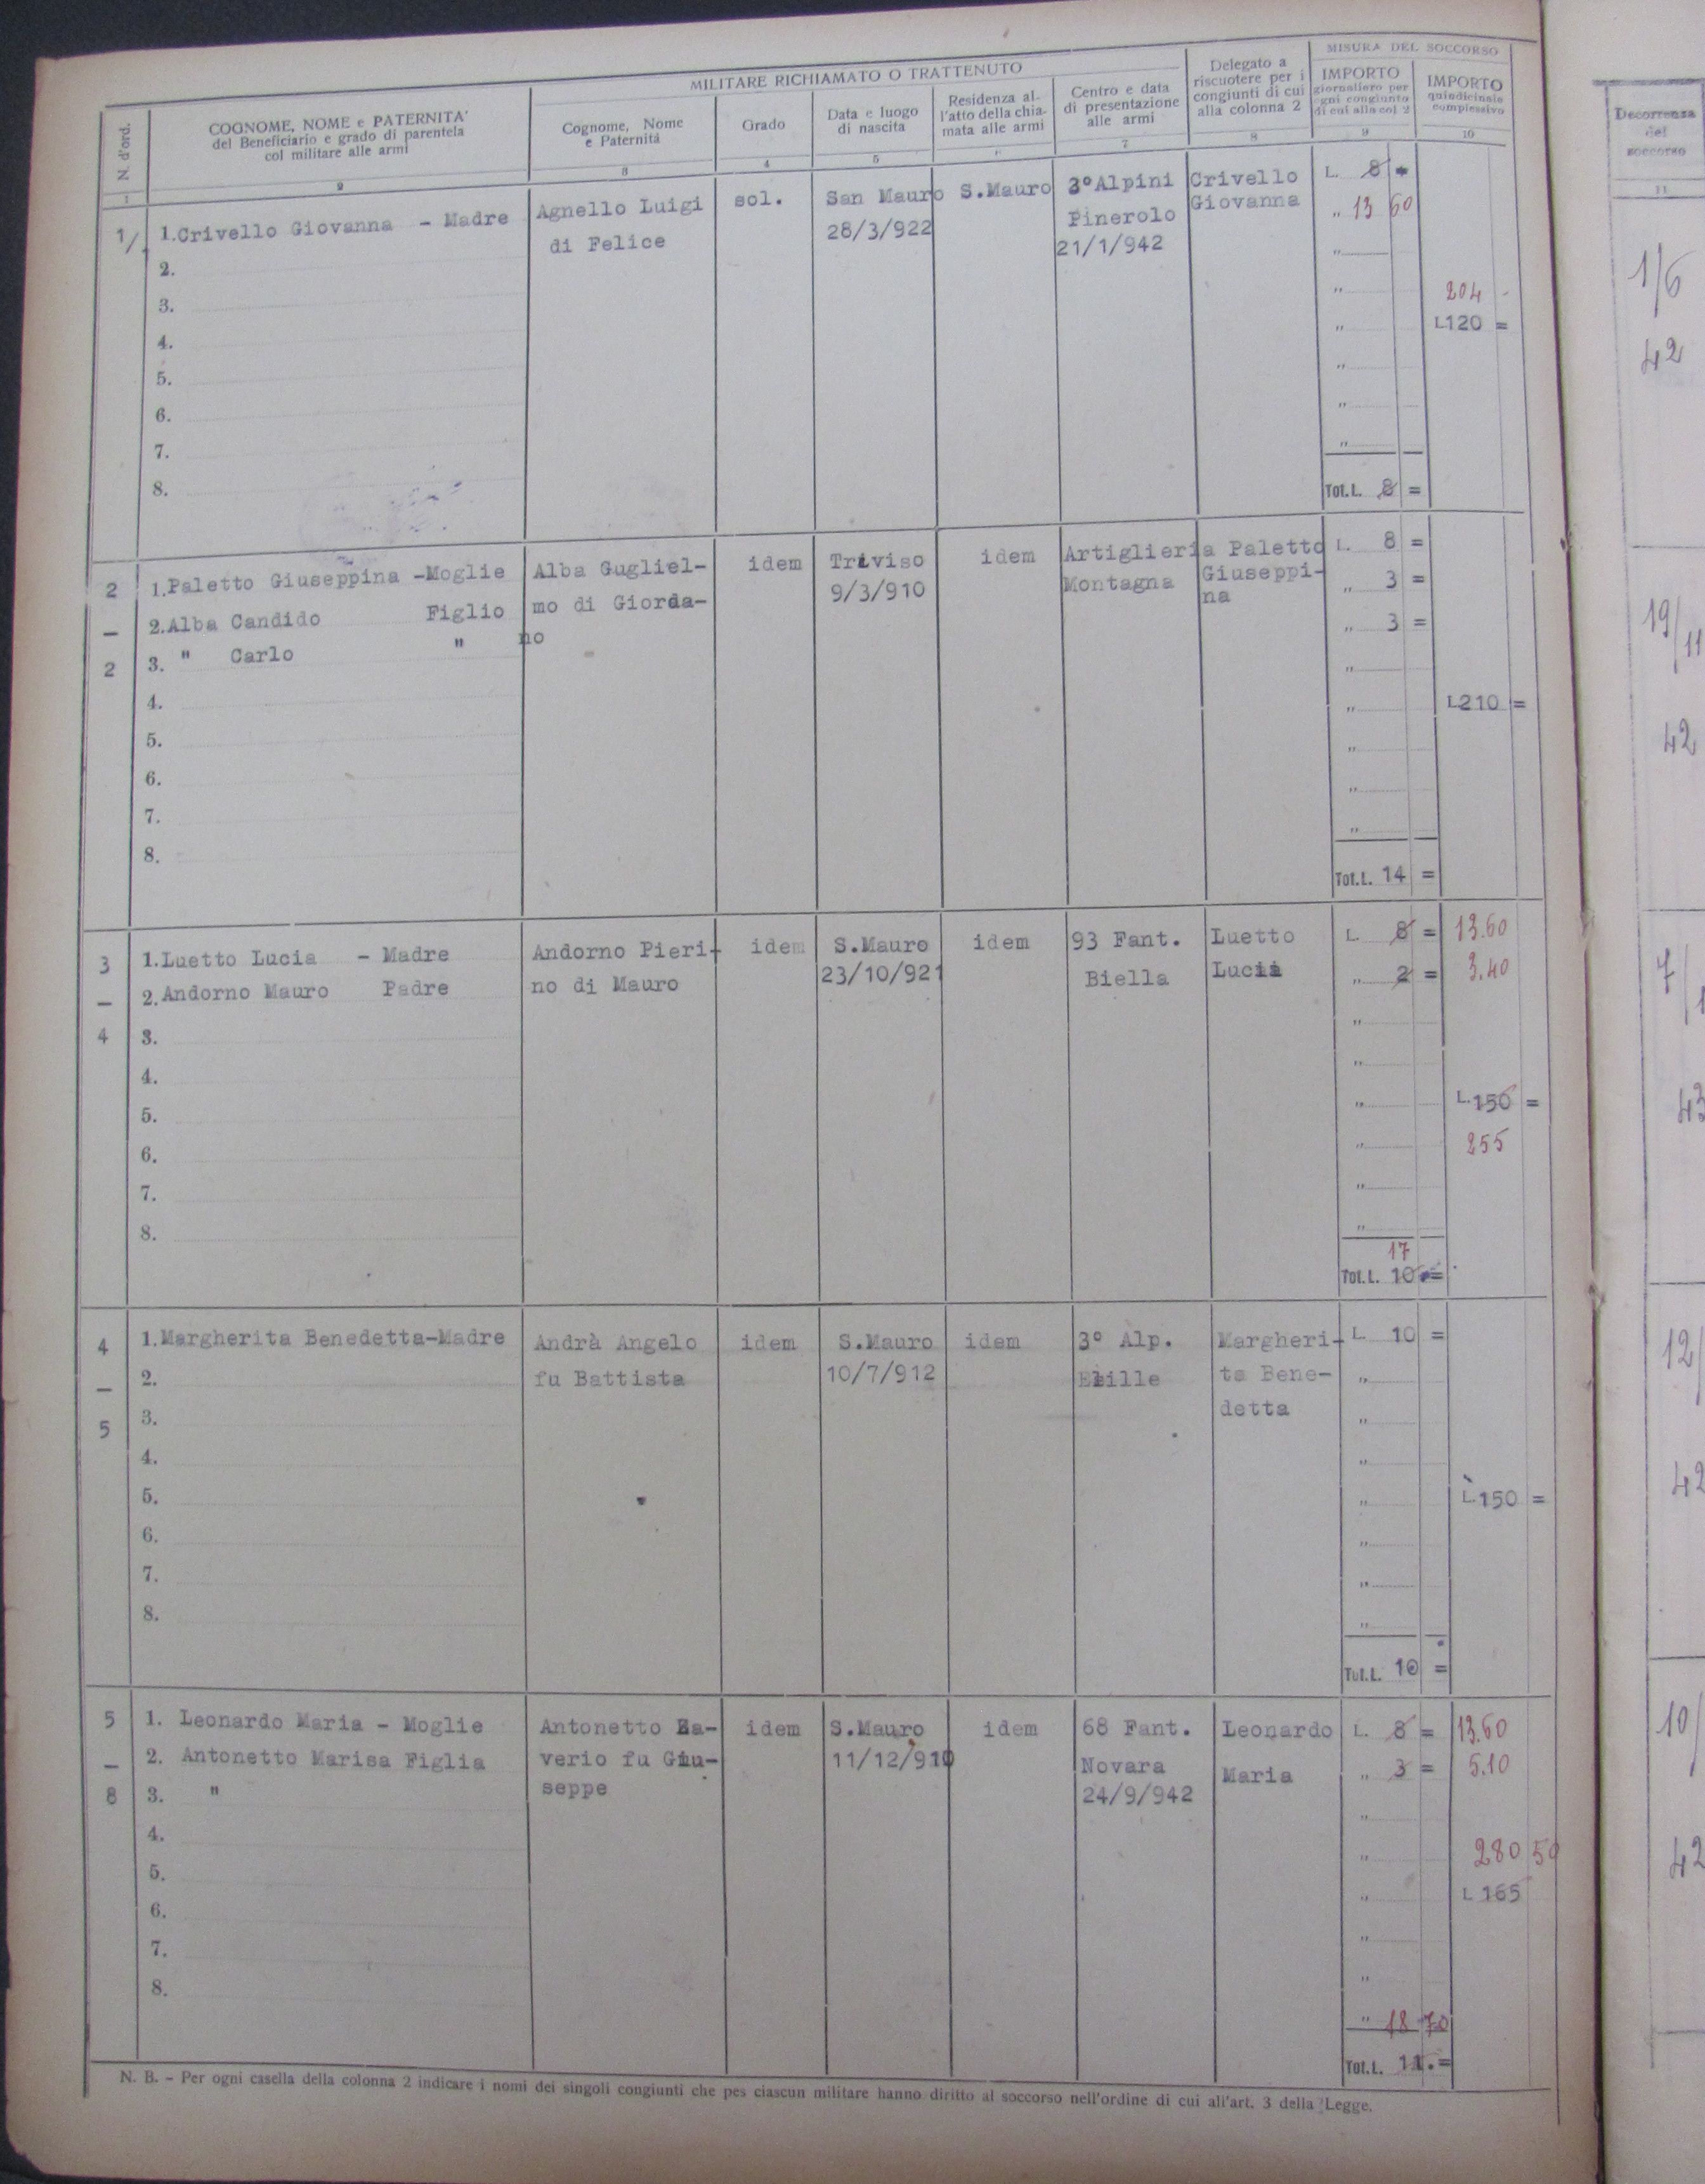 MILITARE RICHIAMATO O TRATTENUTO
MISURA DEL SOCCORSO
N. d'ord.
COGNOME, NOME e PATERNITA'
del Beneficiario e grado di parentela
col militare alle armi
Cognome, Nome
e Paternità
Grado
Data e luogo
di nascita
Residenza al-
l'atto della chia-
mata alle armi
Centro e data
di presentazione
alle armi
Delegato a
riscuotere per i
congiunti di cui
alla colonna 2
IMPORTO
giornaliero per
ogni congiunto
di cui alla col 2
IMPORTO
quindicinale
complessivo
Decorrenza
del
soccorso
1 2 3 4 5 6 7 8 9 10 11
1/
1. Crivello Giovanna - Madre
2.
3.
4.
5.
6.
7.
8.
Agnello Luigi
di Felice
sol.
San Mauro
28/3/922
S.Mauro
3º Alpini
Pinerolo
21/1/942
Crivello
Giovanna
L. 8
" 13 60
"
"
"
"
"
"
Tot. L. 8 =
204 -
L 120 =
1/6
42
2
-
2
1. Paletto Giuseppina -Moglie
2. Alba Candido Figlio
3. " Carlo "
4.
5.
6.
7.
8.
Alba Gugliel-
mo di Giorda-
no
idem
Triviso
9/3/910
idem
Artiglieria
Montagna
Paletto
Giuseppi-
na
L. 8 =
" 3 =
" 3 =
"
"
"
"
"
Tot. L. 14 =
L 210 =
19/11
42
3
-
4
1. Luetto Lucia - Madre
2. Andorno Mauro Padre
3.
4.
5.
6.
7.
8.
Andorno Pieri-
no di Mauro
idem
S.Mauro
23/10/921
idem
93 Fant.
Biella
Luetto
Lucia
L. 8 = 13.60
" 2 = 3.40
"
"
"
"
"
"
17
Tot. L. 10 =
L. 150 =
255
7/
4
-
5
1. Margherita Benedetta-Madre
2.
3.
4.
5.
6.
7.
8.
Andrà Angelo
fu Battista
idem
S.Mauro
10/7/912
idem
3º Alp.
Margheri-
ta Bene-
detta
L. 10 =
"
"
"
"
"
"
"
Tot. L. 10 =
L. 150 =
12/
42
5
-
8
1. Leonardo Maria - Moglie
2. Antonetto Marisa Figlia
3. "
4.
5.
6.
7.
8.
Antonetto Sa-
verio fu Giu-
seppe
idem
S.Mauro
11/12/910
idem
68 Fant.
Novara
24/9/942
Leonardo
Maria
L. 8 = 13.60
" 3 = 5.10
"
"
"
"
"
" 18 70
Tot. L. 11.=
280 50
L 165
10/
42
N. B. - Per ogni casella della colonna 2 indicare i nomi dei singoli congiunti che pes ciascun militare hanno diritto al soccorso nell'ordine di cui all'art. 3 della Legge.